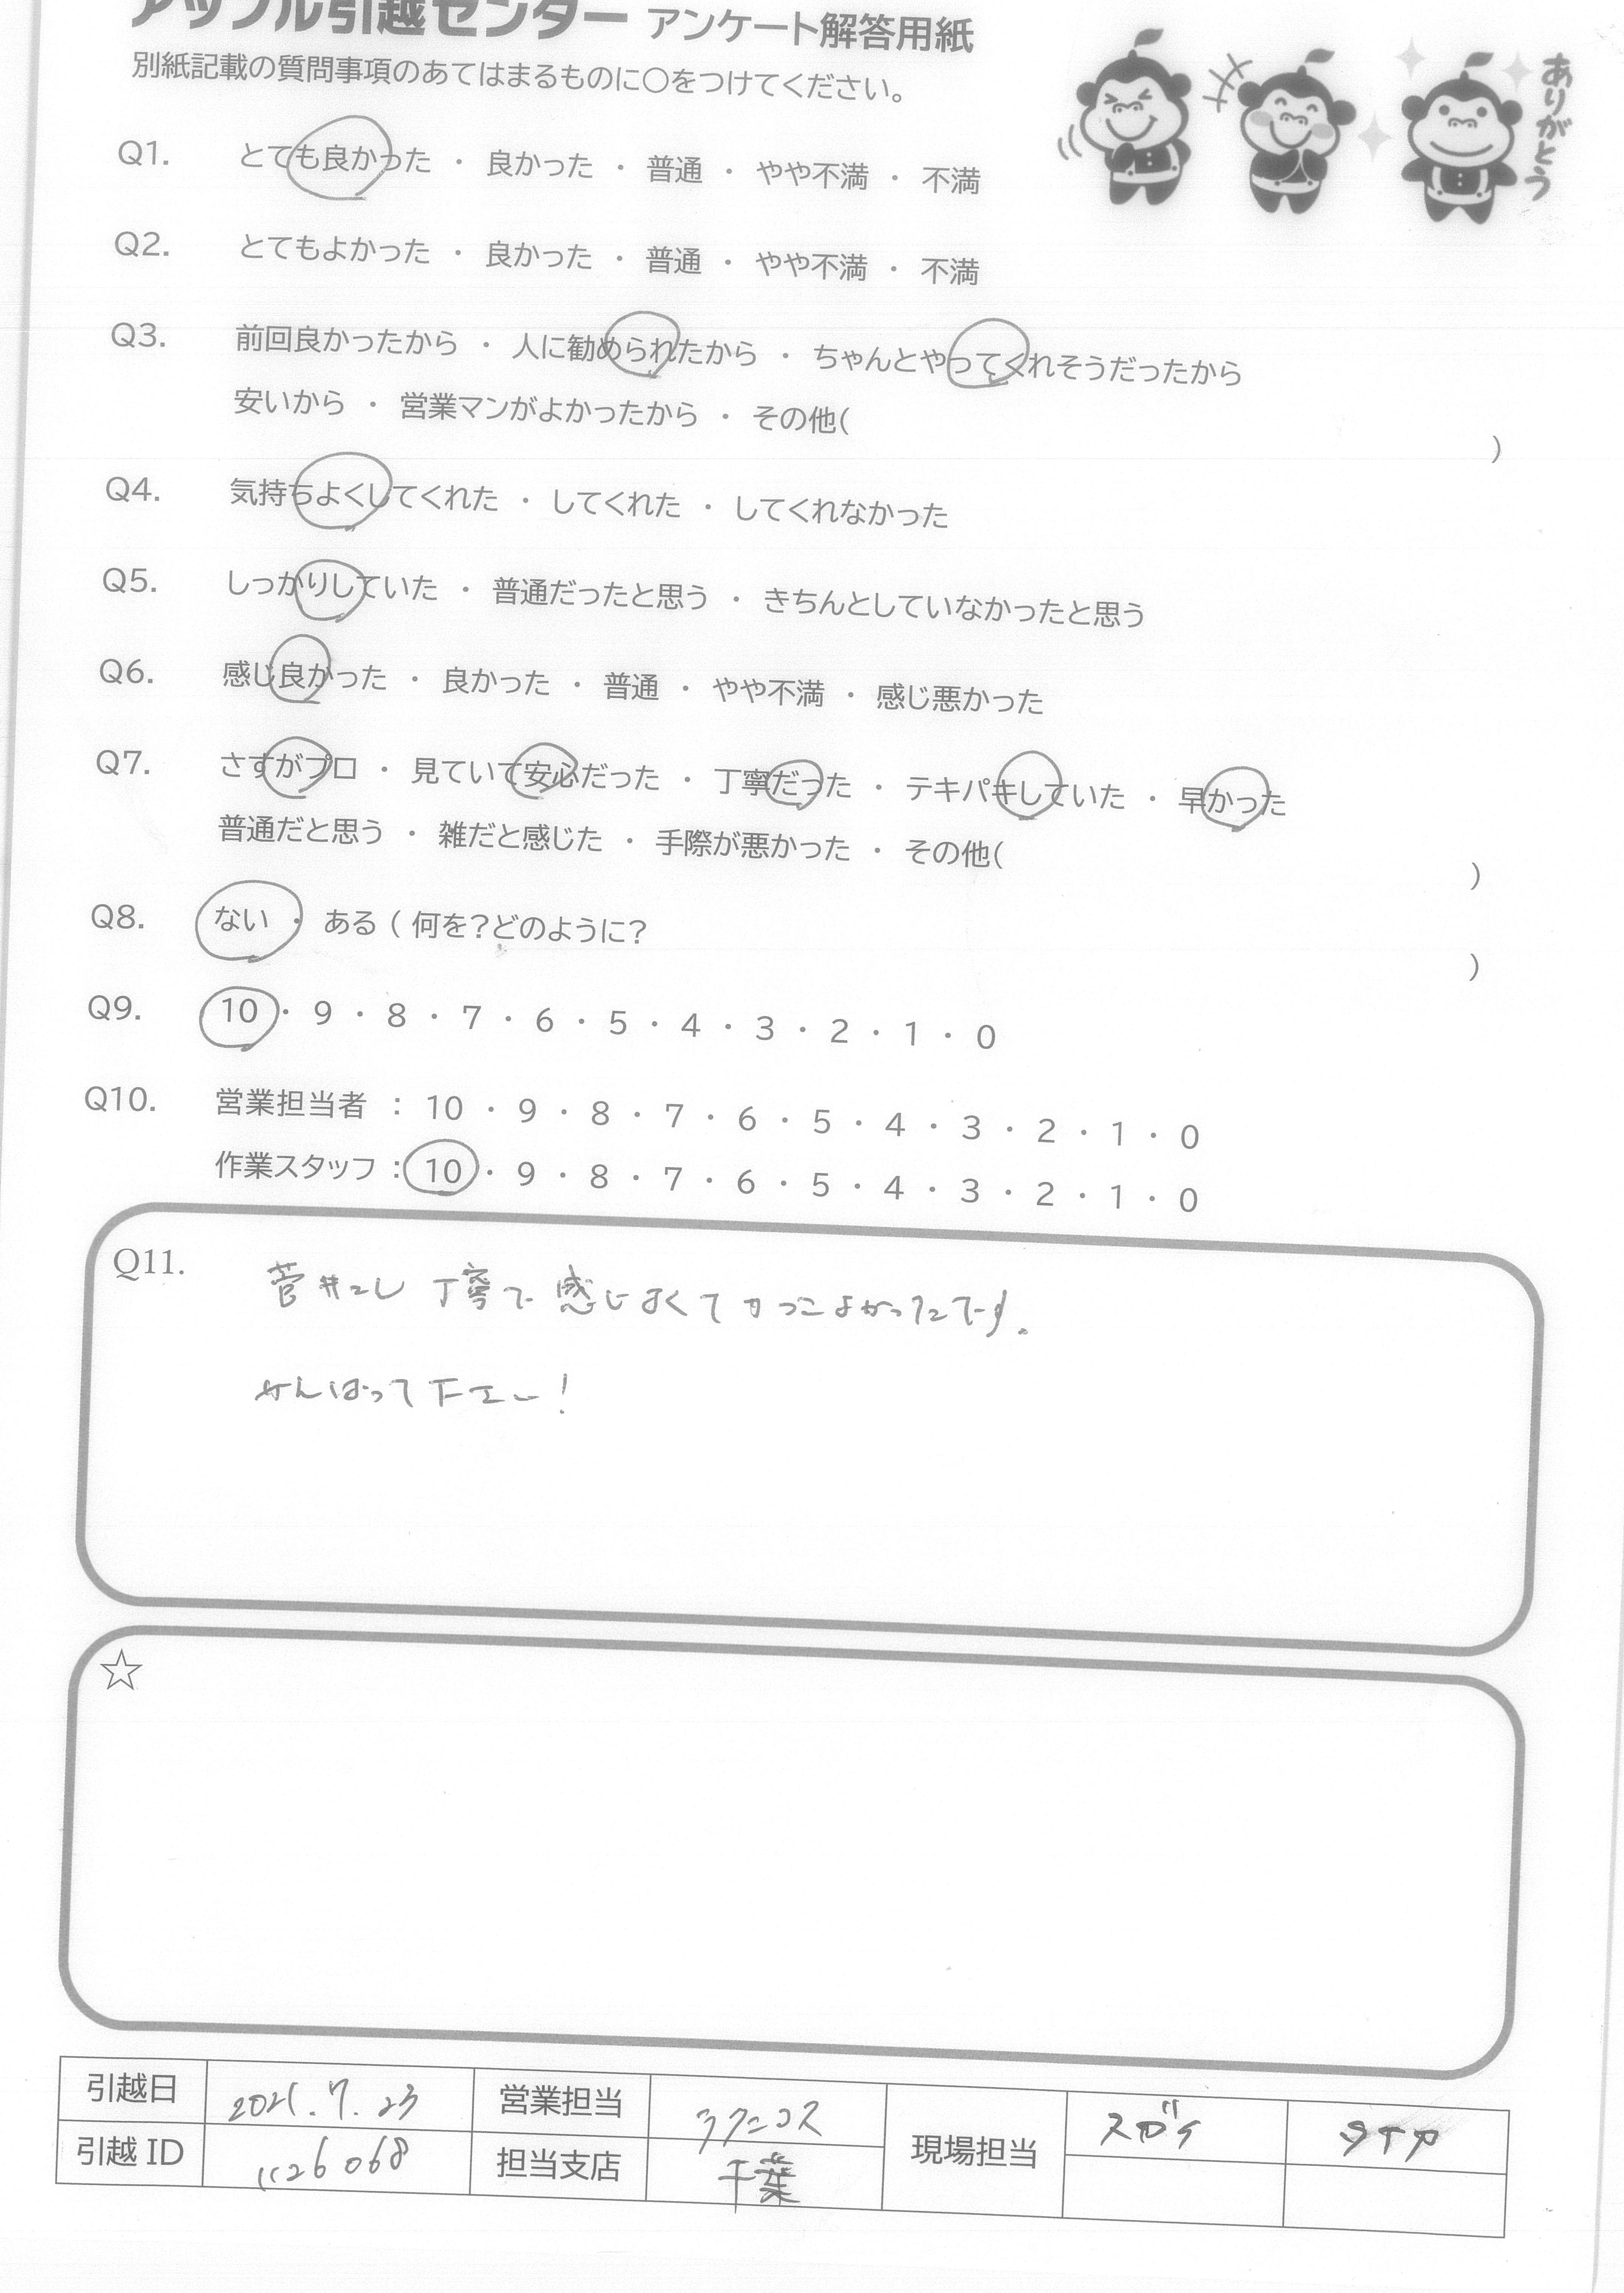 アップル引越センター アンケート解答用紙
別紙記載の質問事項のあてはまるものに○をつけてください。
ありがとう
Q1. とても良かった ・ 良かった ・ 普通 ・ やや不満 ・ 不満
Q2. とてもよかった ・ 良かった ・ 普通 ・ やや不満 ・ 不満
Q3. 前回良かったから ・ 人に勧められたから ・ ちゃんとやってくれそうだったから
安いから ・ 営業マンがよかったから ・ その他( )
Q4. 気持ちよくしてくれた ・ してくれた ・ してくれなかった
Q5. しっかりしていた ・ 普通だったと思う ・ きちんとしていなかったと思う
Q6. 感じ良かった ・ 良かった ・ 普通 ・ やや不満 ・ 感じ悪かった
Q7. さすがプロ ・ 見ていて安心だった ・ 丁寧だった ・ テキパキしていた ・ 早かった
普通だと思う ・ 雑だと感じた ・ 手際が悪かった ・ その他( )
Q8. ない ・ ある ( 何を?どのように? )
Q9. 10 ・ 9 ・ 8 ・ 7 ・ 6 ・ 5 ・ 4 ・ 3 ・ 2 ・ 1 ・ 0
Q10. 営業担当者 : 10 ・ 9 ・ 8 ・ 7 ・ 6 ・ 5 ・ 4 ・ 3 ・ 2 ・ 1 ・ 0
作業スタッフ : 10 ・ 9 ・ 8 ・ 7 ・ 6 ・ 5 ・ 4 ・ 3 ・ 2 ・ 1 ・ 0
Q11. 丁寧で感じよくてかっこよかったです。
がんばって下さい!
☆
引越日 2021.7.23 営業担当 ラクニコス 現場担当 スガイ
引越 ID 1126068 担当支店 千葉